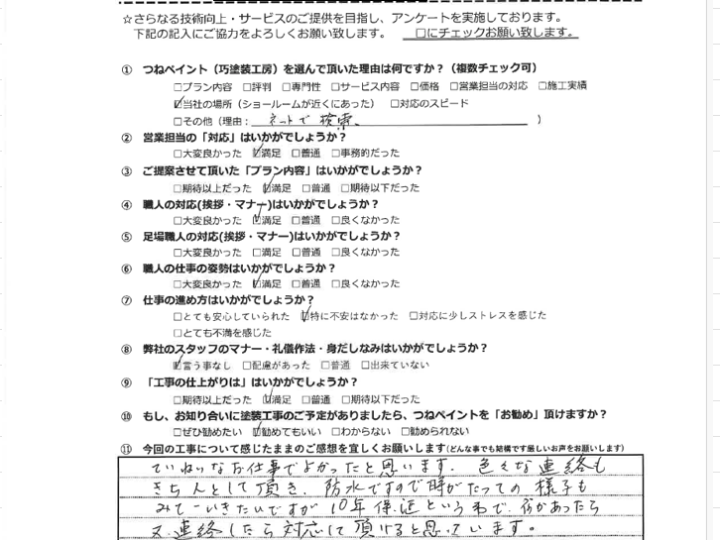 ☆さらなる技術向上・サービスのご提供を目指し、アンケートを実施しております。
下記の記入にご協力をよろしくお願い致します。 □にチェックお願い致します。
① つねペイント（巧塗装工房）を選んで頂いた理由は何ですか？（複数チェック可）
□プラン内容 □評判 □専門性 □サービス内容 □価格 □営業担当の対応 □施工実績
☑当社の場所（ショールームが近くにあった） □対応のスピード
□その他（理由： ネットで検索、 ）
② 営業担当の「対応」はいかがでしょうか？
□大変良かった ☑満足 □普通 □事務的だった
③ ご提案させて頂いた「プラン内容」はいかがでしょうか？
□期待以上だった ☑満足 □普通 □期待以下だった
④ 職人の対応(挨拶・マナー)はいかがでしょうか？
□大変良かった ☑満足 □普通 □良くなかった
⑤ 足場職人の対応(挨拶・マナー)はいかがでしょうか？
□大変良かった □満足 □普通 □良くなかった
⑥ 職人の仕事の姿勢はいかがでしょうか？
□大変良かった ☑満足 □普通 □良くなかった
⑦ 仕事の進め方はいかがでしょうか？
□とても安心していられた ☑特に不安はなかった □対応に少しストレスを感じた
□とても不満を感じた
⑧ 弊社のスタッフのマナー・礼儀作法・身だしなみはいかがでしょうか？
☑言う事なし □配慮があった □普通 □出来ていない
⑨ 「工事の仕上がりは」はいかがでしょうか？
□期待以上だった ☑満足 □普通 □期待以下だった
⑩ もし、お知り合いに塗装工事のご予定がありましたら、つねペイントを「お勧め」頂けますか？
□ぜひ勧めたい ☑勧めてもいい □わからない □勧められない
⑪ 今回の工事について感じたままのご感想を宜しくお願いします（どんな事でも結構です厳しいお声をお願いします）
ていねいなお仕事でよかったと思います。色々な連絡も
きちんとして頂き、防水ですので時がたっての様子も
みていきたいですが10年保証というので、何かあったら
又、連絡したら対応して頂けると思っています。